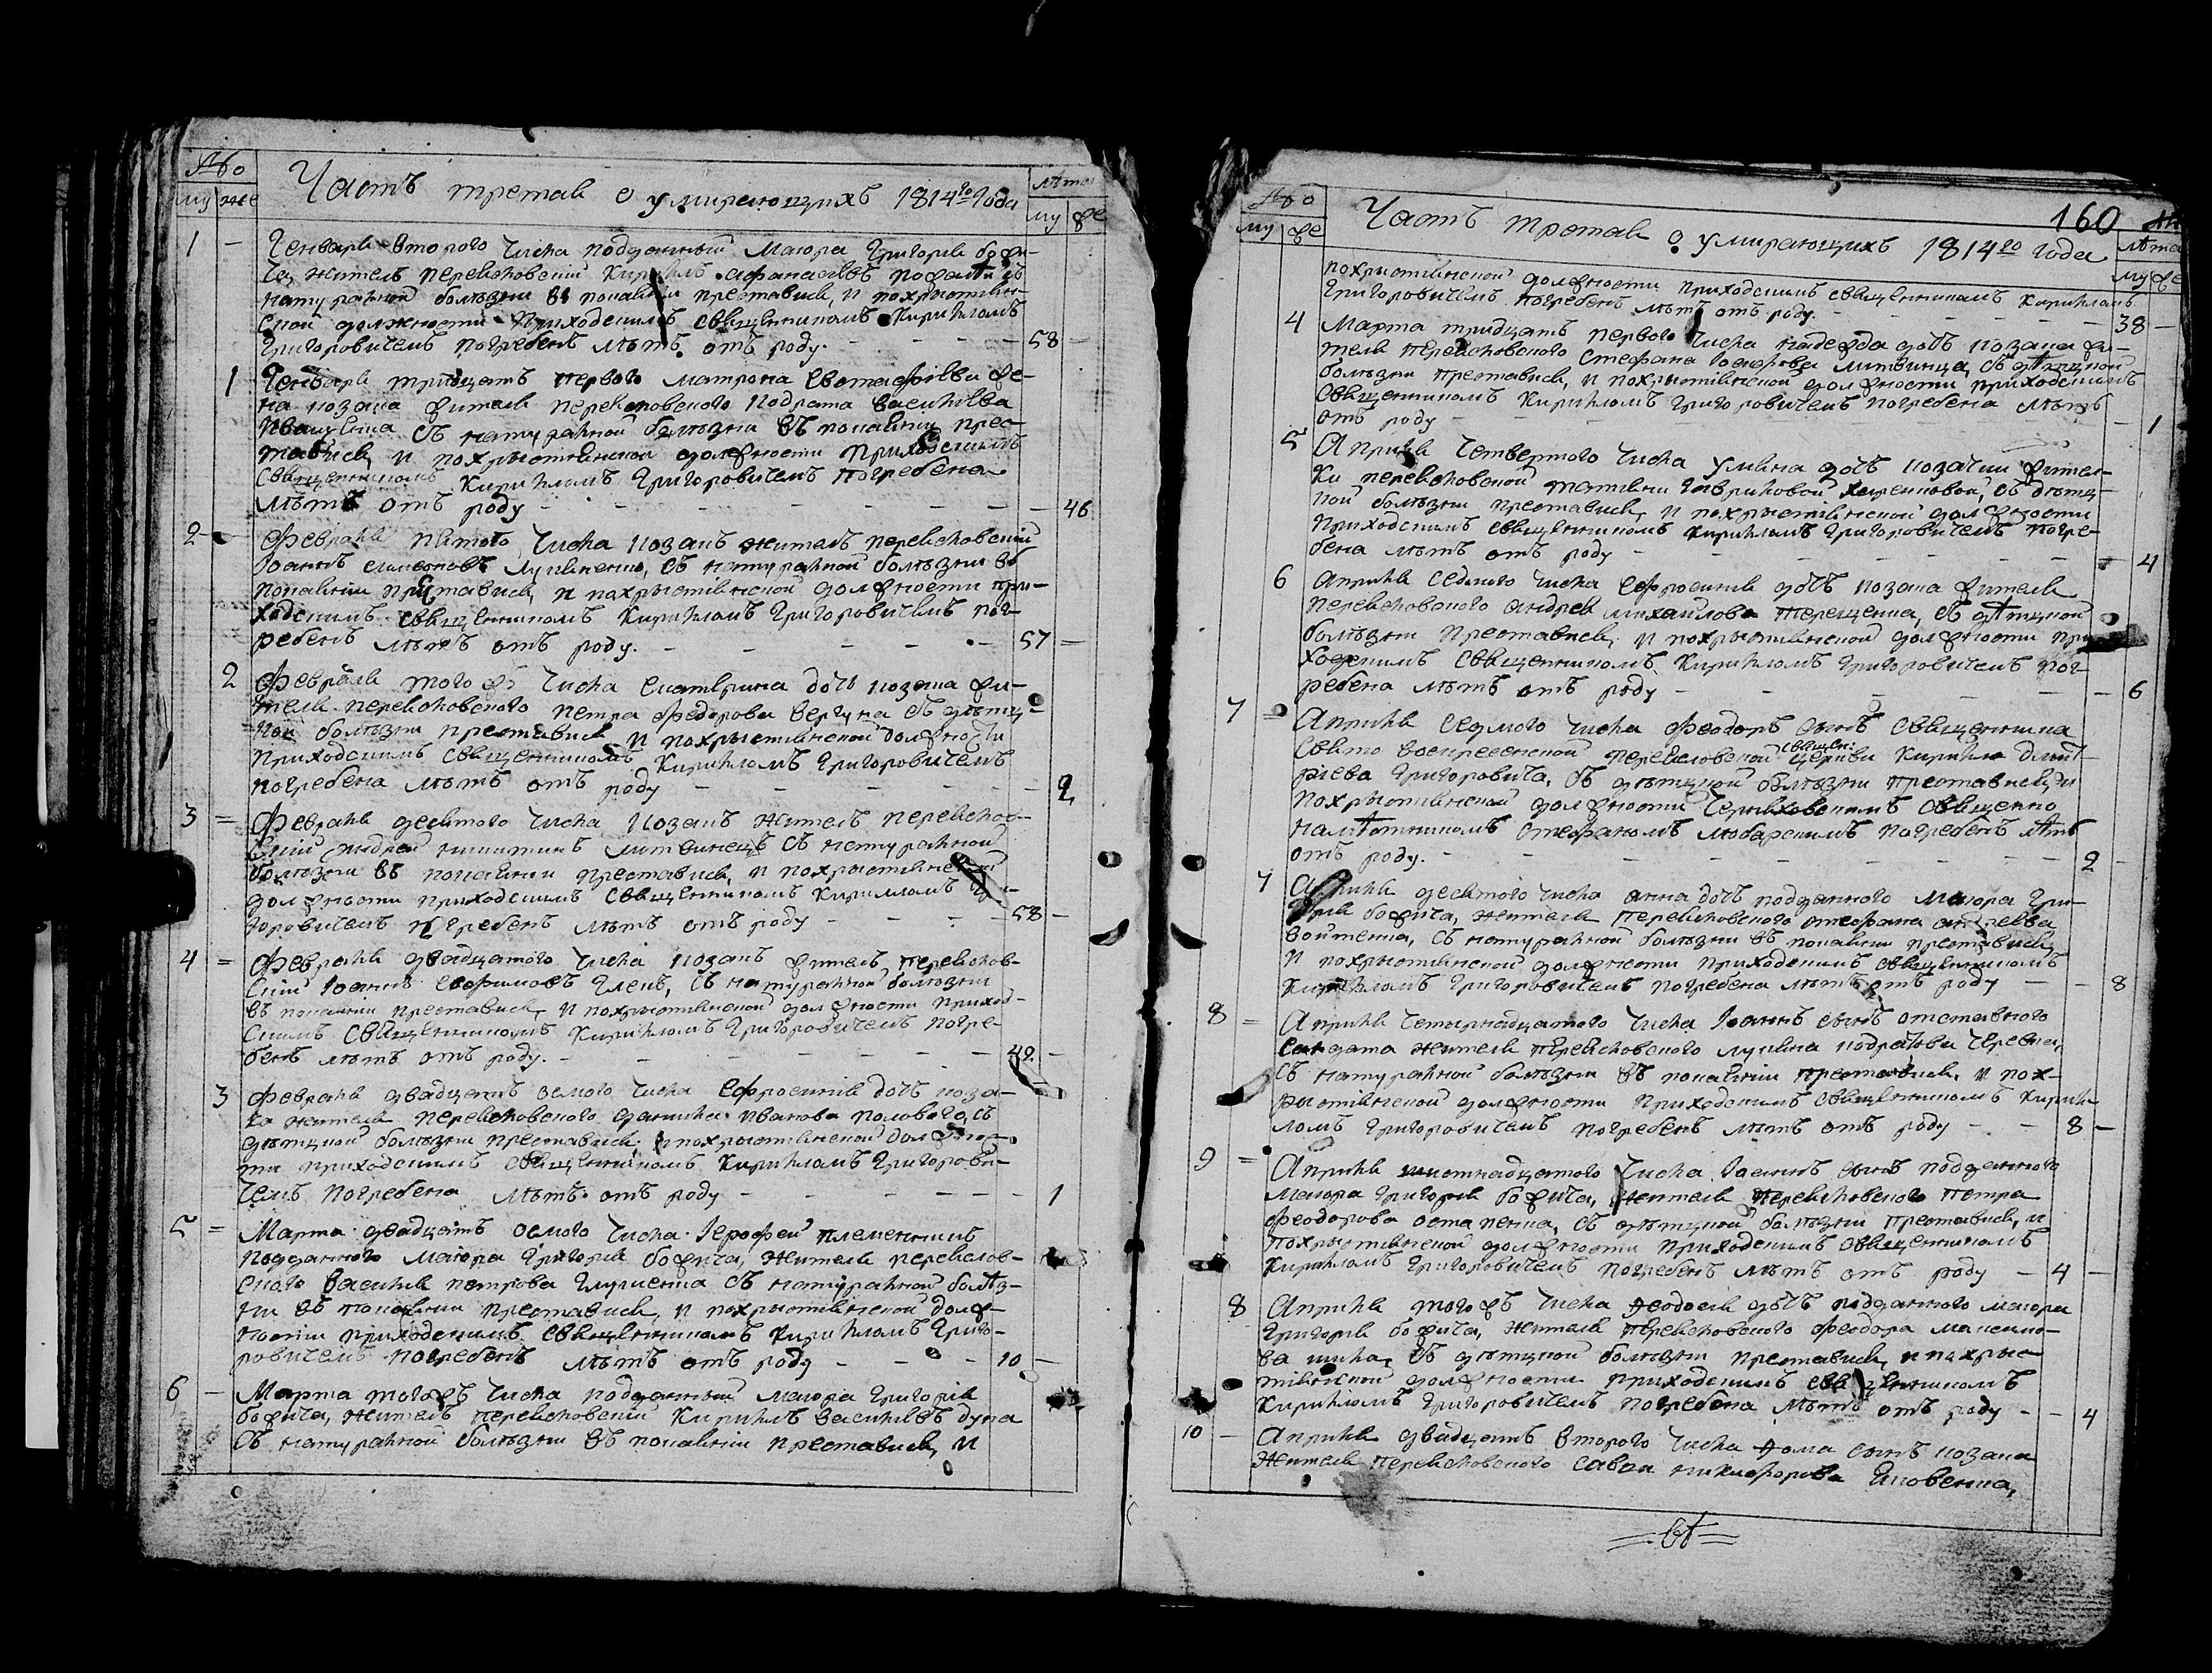 №
му же
Часть третая о умирающихъ 1814го года
лѣта
му фе
1 - Генваря второго числа подданный Маiора Григорiя божи-
ча, житель перевѣсковскiй Кирилъ афанасiевъ
натуралной болѣзни въ покаянiи преставися, и похрыстиян-
ской должности Приходскимъ священникомъ Кириломъ
Григоровичемъ погребенъ лѣтъ отъ роду. - - - - 58 -
1 Генваря тридцать первого Матрона Евстафiева же-
на козака жителя Кодрата васильева
Иващенка съ натуралной болѣзни въ покаянiи прес-
тавися, и похрыстиянской должности Приходскимъ
Священникомъ Кириломъ Григоровичемъ погребена
лѣтъ отъ роду - - - - - 46
2 - Февраля пятого числа козакъ житель
Iоаннъ симеоновъ съ натуралной болѣзни въ
покаянiи преставися, и похрыстиянской должности при-
ходскимъ священникомъ Кириломъ Григоровичемъ пог-
ребенъ лѣтъ отъ роду. - - - - 57 -
2 Февраля того жъ числа Екатерина дочь козака жи-
теля петра федорова съ дѣтц-
кой болѣзни преставися и похрыстиянской должности
Приходскимъ священникомъ Кириломъ Григоровичемъ
погребена лѣтъ отъ роду - - - - 2
3 - Февраля десятого числа козакъ житель
Андрей никитинъ литвинецъ съ натуралной
болѣзни въ покаянiи преставися, и похрыстиянской
должности приходскимъ священникомъ Кириломъ Гри-
горовичемъ погребенъ лѣтъ отъ роду - - - 58 -
4 - Февраля двадцатого числа козакъ житель
Iоаннъ съ натуралной болѣзни
въ покаянiи преставися, и похрыстиянской должности приход-
скимъ священникомъ Кириломъ Григоровичемъ погре-
бенъ лѣтъ отъ роду. - - - - 42 -
3 Февраля двадцать осмого числа Ефросиния дочь коза-
ка жителя данила иванова полового, съ
дѣтцкой болѣзни преставися и похрыстиянской должнос-
ти приходскимъ священникомъ Кириломъ Григорови-
чемъ погребена лѣтъ отъ роду - - - - 1
5 - Марта двадцать осмого числа Iерофей племенникъ
подданного Маiора Григорiя божича, жителя
василия петрова съ натуралной болѣз-
ни въ покаянiи преставися, и похрыстиянской долж-
ности приходскимъ священникомъ Кириломъ Григо-
ровичемъ погребенъ лѣтъ отъ роду - - - 10 -
6 - Марта тогожъ числа подданный маiора Григорiя
божича, житель Кирилъ васильевъ дука
съ натуралной болѣзни въ покаянiи преставися, и
№
му фе
160
Часть третая о умирающихъ 1814го года
лѣта
му фе
похрыстиянской должности приходскимъ священникомъ Кириломъ
Григоровичемъ погребенъ лѣтъ отъ роду. - - - - 38 -
4 Марта тридцать первого числа надежда дочь козака жи-
теля Стефана литвинца, съ дѣтцкой
болѣзни преставися, и похрыстиянской должности приходскимъ
Священникомъ Кириломъ Григоровичемъ погребена лѣтъ
отъ роду - - - - 1
5 Априля четвертого числа Улияна дочь козачки жител-
ки татияни съ дѣтц-
кой болѣзни преставися, и похрыстиянской должности
Приходскимъ священникомъ Кириломъ Григоровичемъ погре-
бена лѣтъ отъ роду - - - - 4
6 Априля седмого числа Ефросиния дочь козака жителя
андрея михайлова терещенка, съ дѣтцкой
болѣзни преставися, и похрыстиянской должности при-
ходскимъ священникомъ Кириломъ Григоровичемъ пог-
ребена лѣтъ отъ роду - - - - 6
7 - Априля седмого числа Феодоръ сынъ священника
Свято воскресенской церкви Кирила димит-
рiева Григоровича, съ дѣтцкой болѣзни преставися, и
похрыстиянской должности священно
намѣстникомъ Стефаномъ погребенъ лѣтъ
отъ роду. - - - - 2 -
7 Априля десятого числа анна дочь подданного маiора Гри-
горiя божича, жителя стефана андреева
войтенка, съ натуралной болѣзни въ покаянiи преставися,
и похрыстиянской должности приходскимъ священникомъ
Кириломъ Григоровичемъ погребена лѣтъ отъ роду - - 8
8 - Априля четырнадцатого числа Iоаннъ сынъ отставного
салдата жителя
съ натуралной болѣзни въ покаянiи преставися, и пох-
рыстиянской должности Приходскимъ священникомъ Кири-
ломъ Григоровичемъ погребенъ лѣтъ отъ роду - - 8 -
9 - Априля шистнадцатого числа Iоаннъ сынъ подданного
маiора Григорiя божича, жителя петра
феодорова остапенка, съ дѣтцкой болѣзни преставися, и
похрыстиянской должности приходскимъ священникомъ
Кириломъ Григоровичемъ погребенъ лѣтъ отъ роду - 4 -
8 Априля того жъ числа Феодосия дочь подданного маiора
Григорiя божича, жителя Феодора максимо-
ва съ дѣтцкой болѣзни преставися, и похрыс-
тиянской должности приходскимъ священникомъ
Кириломъ Григоровичемъ погребена лѣтъ отъ роду - - 4
10 - Априля двадцать второго числа Фома сынъ козака
жителя савы никифорова Яковенка,